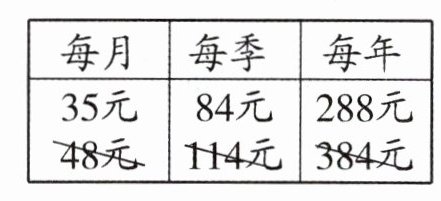 每月 每季 每年
35元 84元 288元
48元 114元 384元